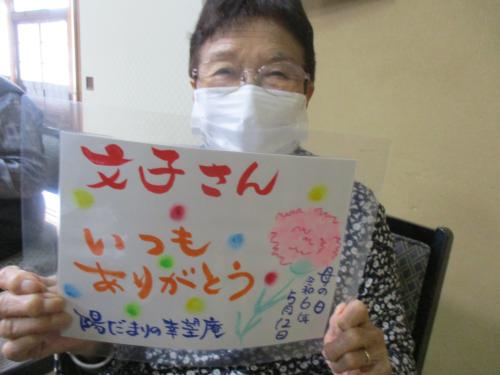 文子さん
いつも
ありがとう
母の日
令和6年
5月12日
陽だまりの幸望庵